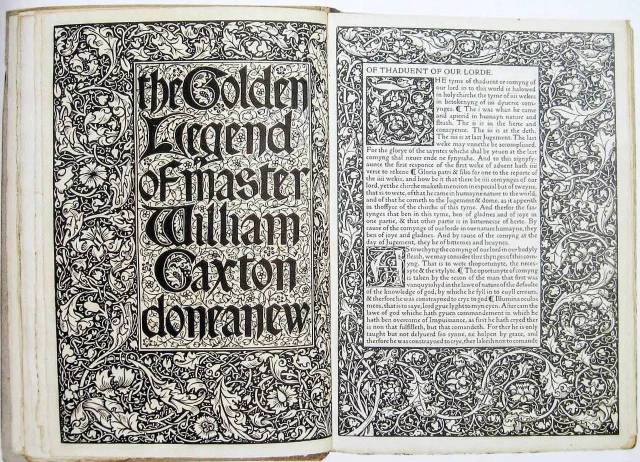 the Golden
Legend
of master
William
Caxton
done anew
OF THADUENT OF OUR LORDE.
THE tyme of thaduent or comyng of
our lord in to this world is halowed
in holy chirche the tyme of iiii wekes
in betokenyng of iiii dyuerse com-
ynges. ¶ The i was whan he came
and apierid in humayn nature and
flessh. The ii is in the herte and
conscyence. The iii is at the deth.
The iiii is at last Jugement. The last
weke may vnnethe be accomplisshed.
For the glorye of the sayntes whiche shal be yeuen at the last
comyng shal neuer ende ne fynysshe. And to this signyfy-
aunce the first response of the first weke of aduent hath iiii
verse to rekene ¶ Gloria patri & filio for one to the reporte of
the iiii wekis, and how be it that there be iiii comynges of our
lord, yet the chirche maketh mencion in especial but of tweyne,
that is to wete, of that he came in humayne nature to the world,
and of that he cometh to the Jugement & dome, as it apperith
in thoffyce of the chirche of this tyme. And therfor the fas-
tynges that ben in this tyme, ben of gladnes and of ioye in
one partie, & that other partie is in bitternesse of herte. By
cause of the comynge of our lorde in our nature humayne, they
ben of ioye and gladnes. And by cause of the comyng at the
day of Jugement, they be of bitternes and heuynes.
As towchyng the comyng of our lord in our bodyly
flessh, we may considere thre thynges of this com-
yng. That is to wete thoportunyte, the neces-
syte & the vtylyte. ¶ The oportunyte of comyng
is taken by the reson of the man that first was
vanquysshyd in the lawe of nature of the defaulte
of the knowledge of god, by whiche he fyll in to euyll errours,
& therfore he was constrayned to crye to god ¶ Illumina oculos
meos, that is to saye, lord gyue lyght to myn eyen. After cam the
lawe of god whiche hath gyuen commandement in which he
hath ben ouercome of Impuissance, as first he hath cryed ther
is non that fulfilleth, but that comandeth. For ther he is only
taught but not delyuerd fro synne, ne holpen by grace, and
therfore he was constrayned to crye, ther lacketh non to comande